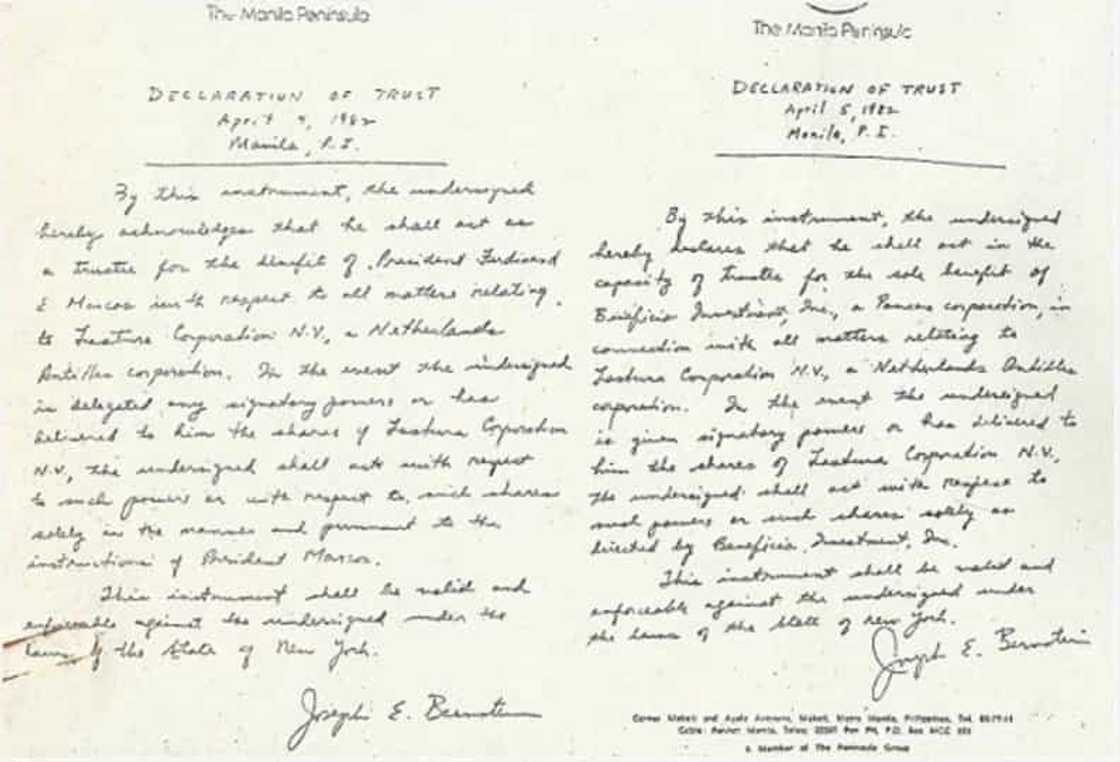 The Manila Peninsula
DECLARATION OF TRUST
April 4, 1982
Manila, P.I.
By this instrument, the undersigned
hereby acknowledges that he shall act as
a trustee for the benefit of President Ferdinand
E Marcos with respect to all matters relating
to Lastura Corporation N.V., a Netherlands
Antilles corporation. In the event the undersigned
is delegated any signatory powers or has
delivered to him the shares of Lastura Corporation
N.V., the undersigned shall act with respect
to such powers or with respect to such shares
solely in the manner and pursuant to the
instructions of President Marcos.
This instrument shall be valid and
enforceable against the undersigned under the
laws of the State of New York.
Joseph E. Bernstein
The Manila Peninsula
DECLARATION OF TRUST
April 5, 1982
Manila, P.I.
By this instrument, the undersigned
hereby declares that he shall act in the
capacity of trustee for the sole benefit of
Beneficio Investment, Inc., a Panama corporation, in
connection with all matters relating to
Lastura Corporation N.V., a Netherlands Antilles
corporation. In the event the undersigned
is given signatory powers or has delivered to
him the shares of Lastura Corporation N.V.,
the undersigned shall act with respect to
such powers or such shares solely as
directed by Beneficio Investment, Inc.
This instrument shall be valid and
enforceable against the undersigned under
the laws of the State of New York.
Joseph E. Bernstein
Corner Makati and Ayala Avenues, Makati, Metro Manila, Philippines, Tel.
Cable: Penhot Manila, Telex: Pen PH, P.O. Box MCC
A Member of The Peninsula Group